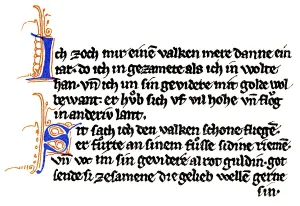 Ich zoch mir einē valken mere danne ein
iar. do ich in gezamete als ich in wolte
han. vñ ich im sin gevidere mit golde wol
bewant. er hůb sich vf vil hohe vñ flǒg
in anderiv lant.
Sit sach ich den valken schone fliegē.
er fůrte an sinem fůsse sidine riemē.
vñ wc im sin gevidere alrot guldin. got
sende si zesamene die gelieb wellē gerne
sin.